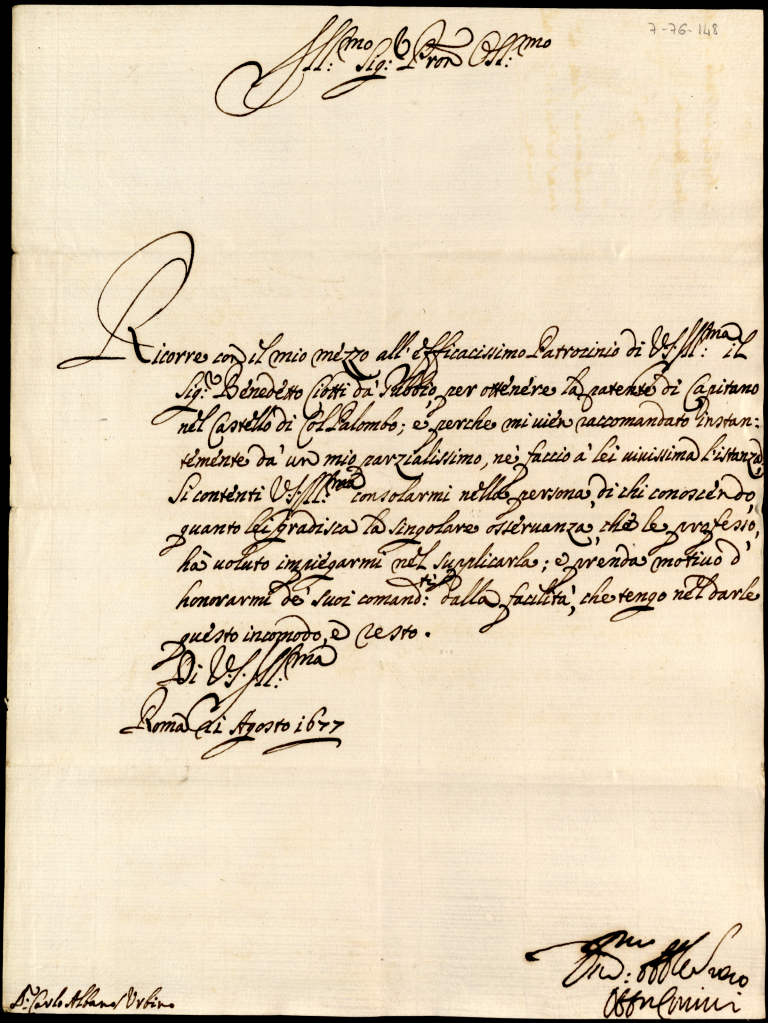 7-76-148
Ill:mo Sig:r Pron Oss:mo
Ricorre con il mio mezzo all'efficacissimo Patrocinio di V.S. Ill:ma il
Sig:r Benedetto Ciotti da Gubbio, per ottenere la patente di Capitano
nel Castello di Col Palombo; e perche mi vien raccomandato instan:
temente da un mio parzialissimo, ne faccio à lei vivissima l'istanza.
Si contenti V.S. Ill:ma consolarmi nella persona, di chi conoscendo,
quanto lei gradisca la singolare osservanza, che le professo,
hà voluto impiegarmi nel supplicarla; e prenda motivo d'
honorarmi de' suoi comand:ti dalla facilità, che tengo nel darle
questo incomodo, e resto.
Di V.S. Ill:ma
Roma di Agosto 1677
S.r Carlo Albano / Urbino